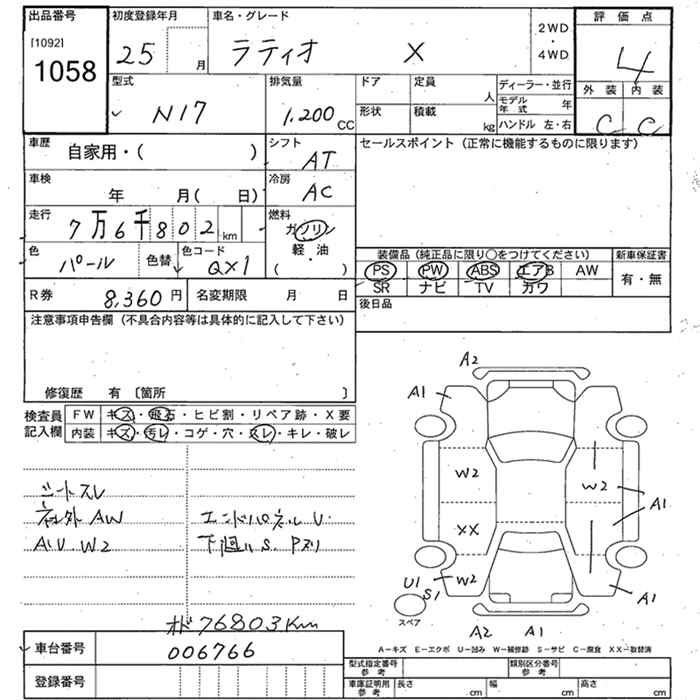 出品番号 初度登録年月 車名・グレード 評価点
[1092]
1058
25 月 ラティオ X 2WD・4WD 4
型式 排気量 ドア 定員 人 ディーラー・並行 外装 内装
N17 1,200 CC 形状 積載 kg モデル年式 年 C C
ハンドル 左・右
車歴 自家用・( ) シフト AT セールスポイント (正常に機能するものに限ります)
車検 年 月( 日) 冷房 AC
走行 7万6千802km 燃料 ガソリン
軽・油
( )
色 パール 色替 色コード QX1
装備品 (純正品に限り○をつけてください) 新車保証書
PS PW ABS エアB AW 有・無
SR ナビ TV カワ
R券 8,360円 名変期限 月 日 後日品
注意事項申告欄 (不具合内容等は具体的に記入して下さい)
修復歴 有 〔箇所 〕
検査員記入欄 FW キズ・飛石・ヒビ割・リペア跡・X要
内装 キズ・汚レ・コゲ・穴・スレ・キレ・破レ
シートスレ
ネ外AW エンドパネルU.
A1U.W2 下廻りS.Pズリ
オド76803Km
車台番号 006766
登録番号
A2
A1
W2
W2
XX
A1
U1
S1
W2
A1
スペア
A2 A1
A-キズ E-エクボ U-凹み W-補修跡 S-サビ C-腐食 XX-取替済
型式指定番号 参考 類別区分番号 参考
車庫証明用 参考 長さ cm 幅 cm 高さ cm